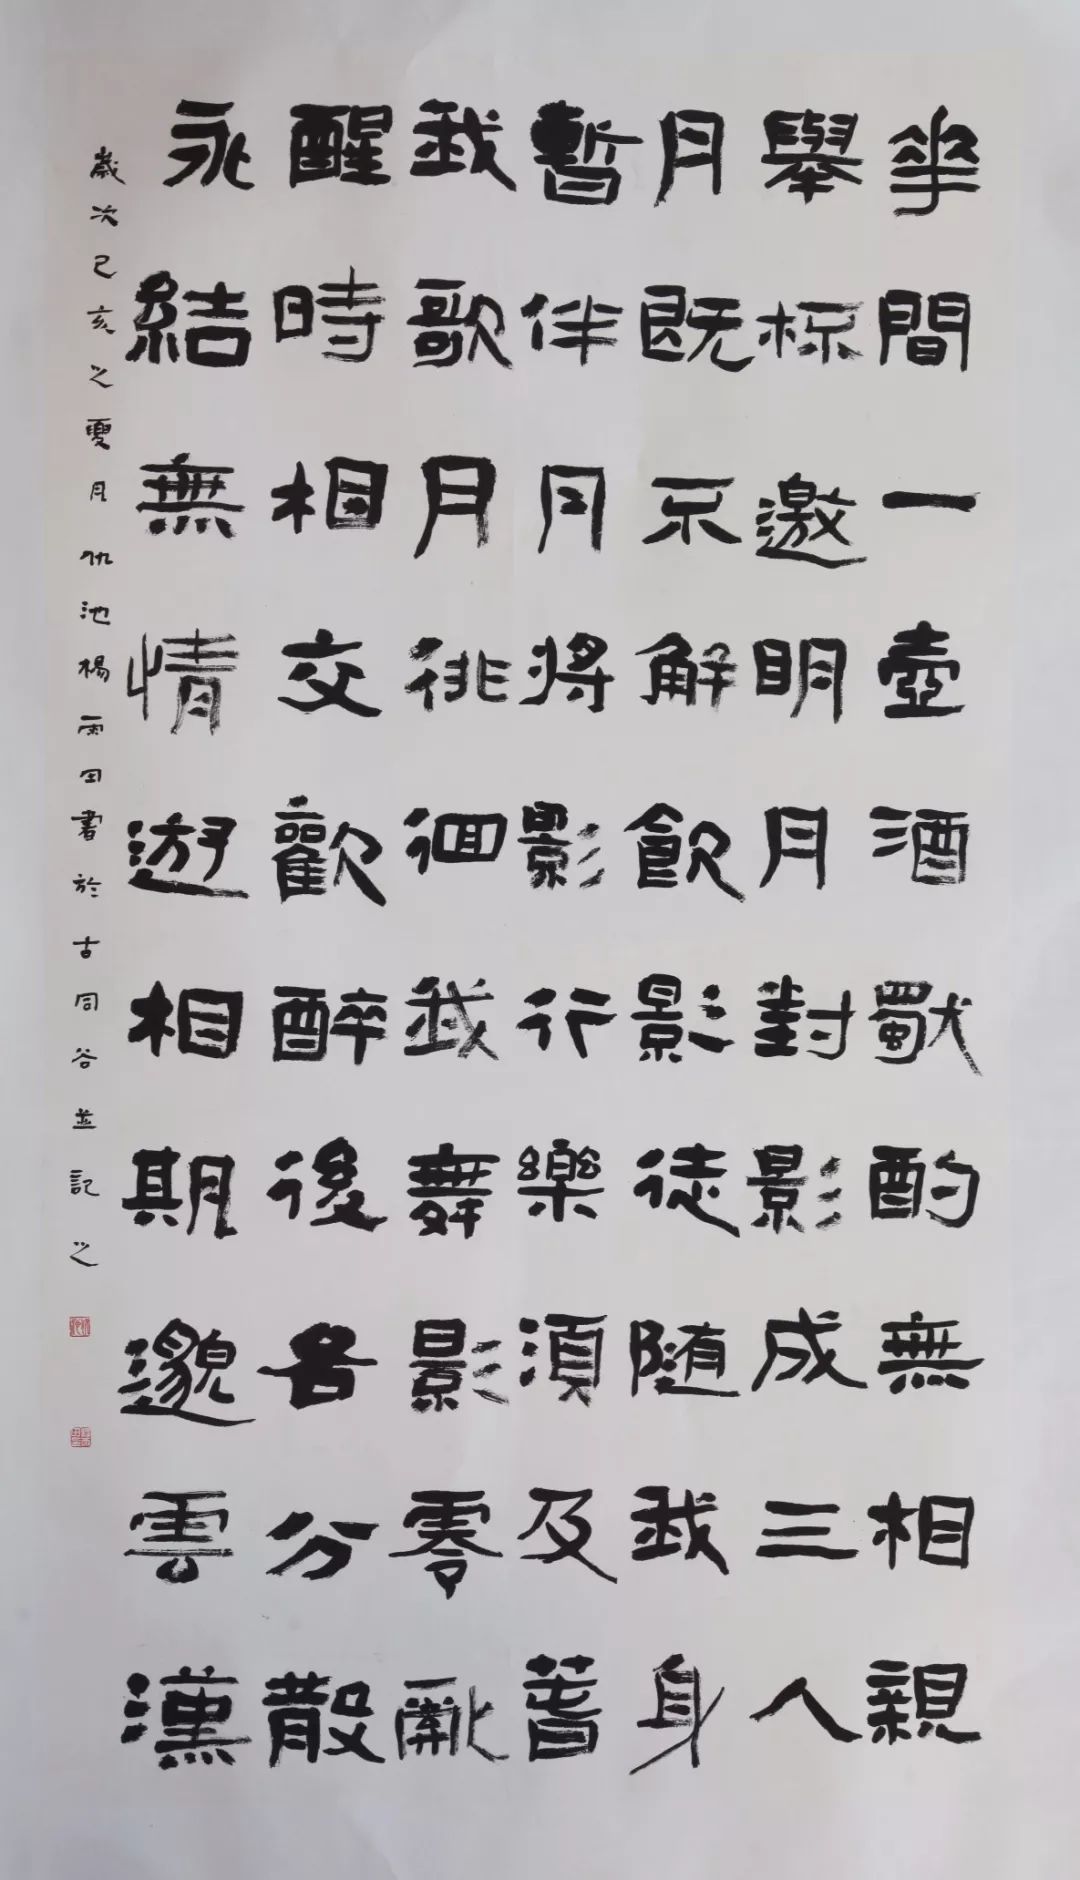 華間一壺酒獨酌無相親
舉杯邀明月對影成三人
月既不解飲影徒随我身
暫伴月將影行樂須及春
我歌月徘徊我舞影零亂
醒時相交歡醉後各分散
永結無情遊相期邈雲漢
歲次己亥之夏月仇池楊雨田書於古同谷並記之